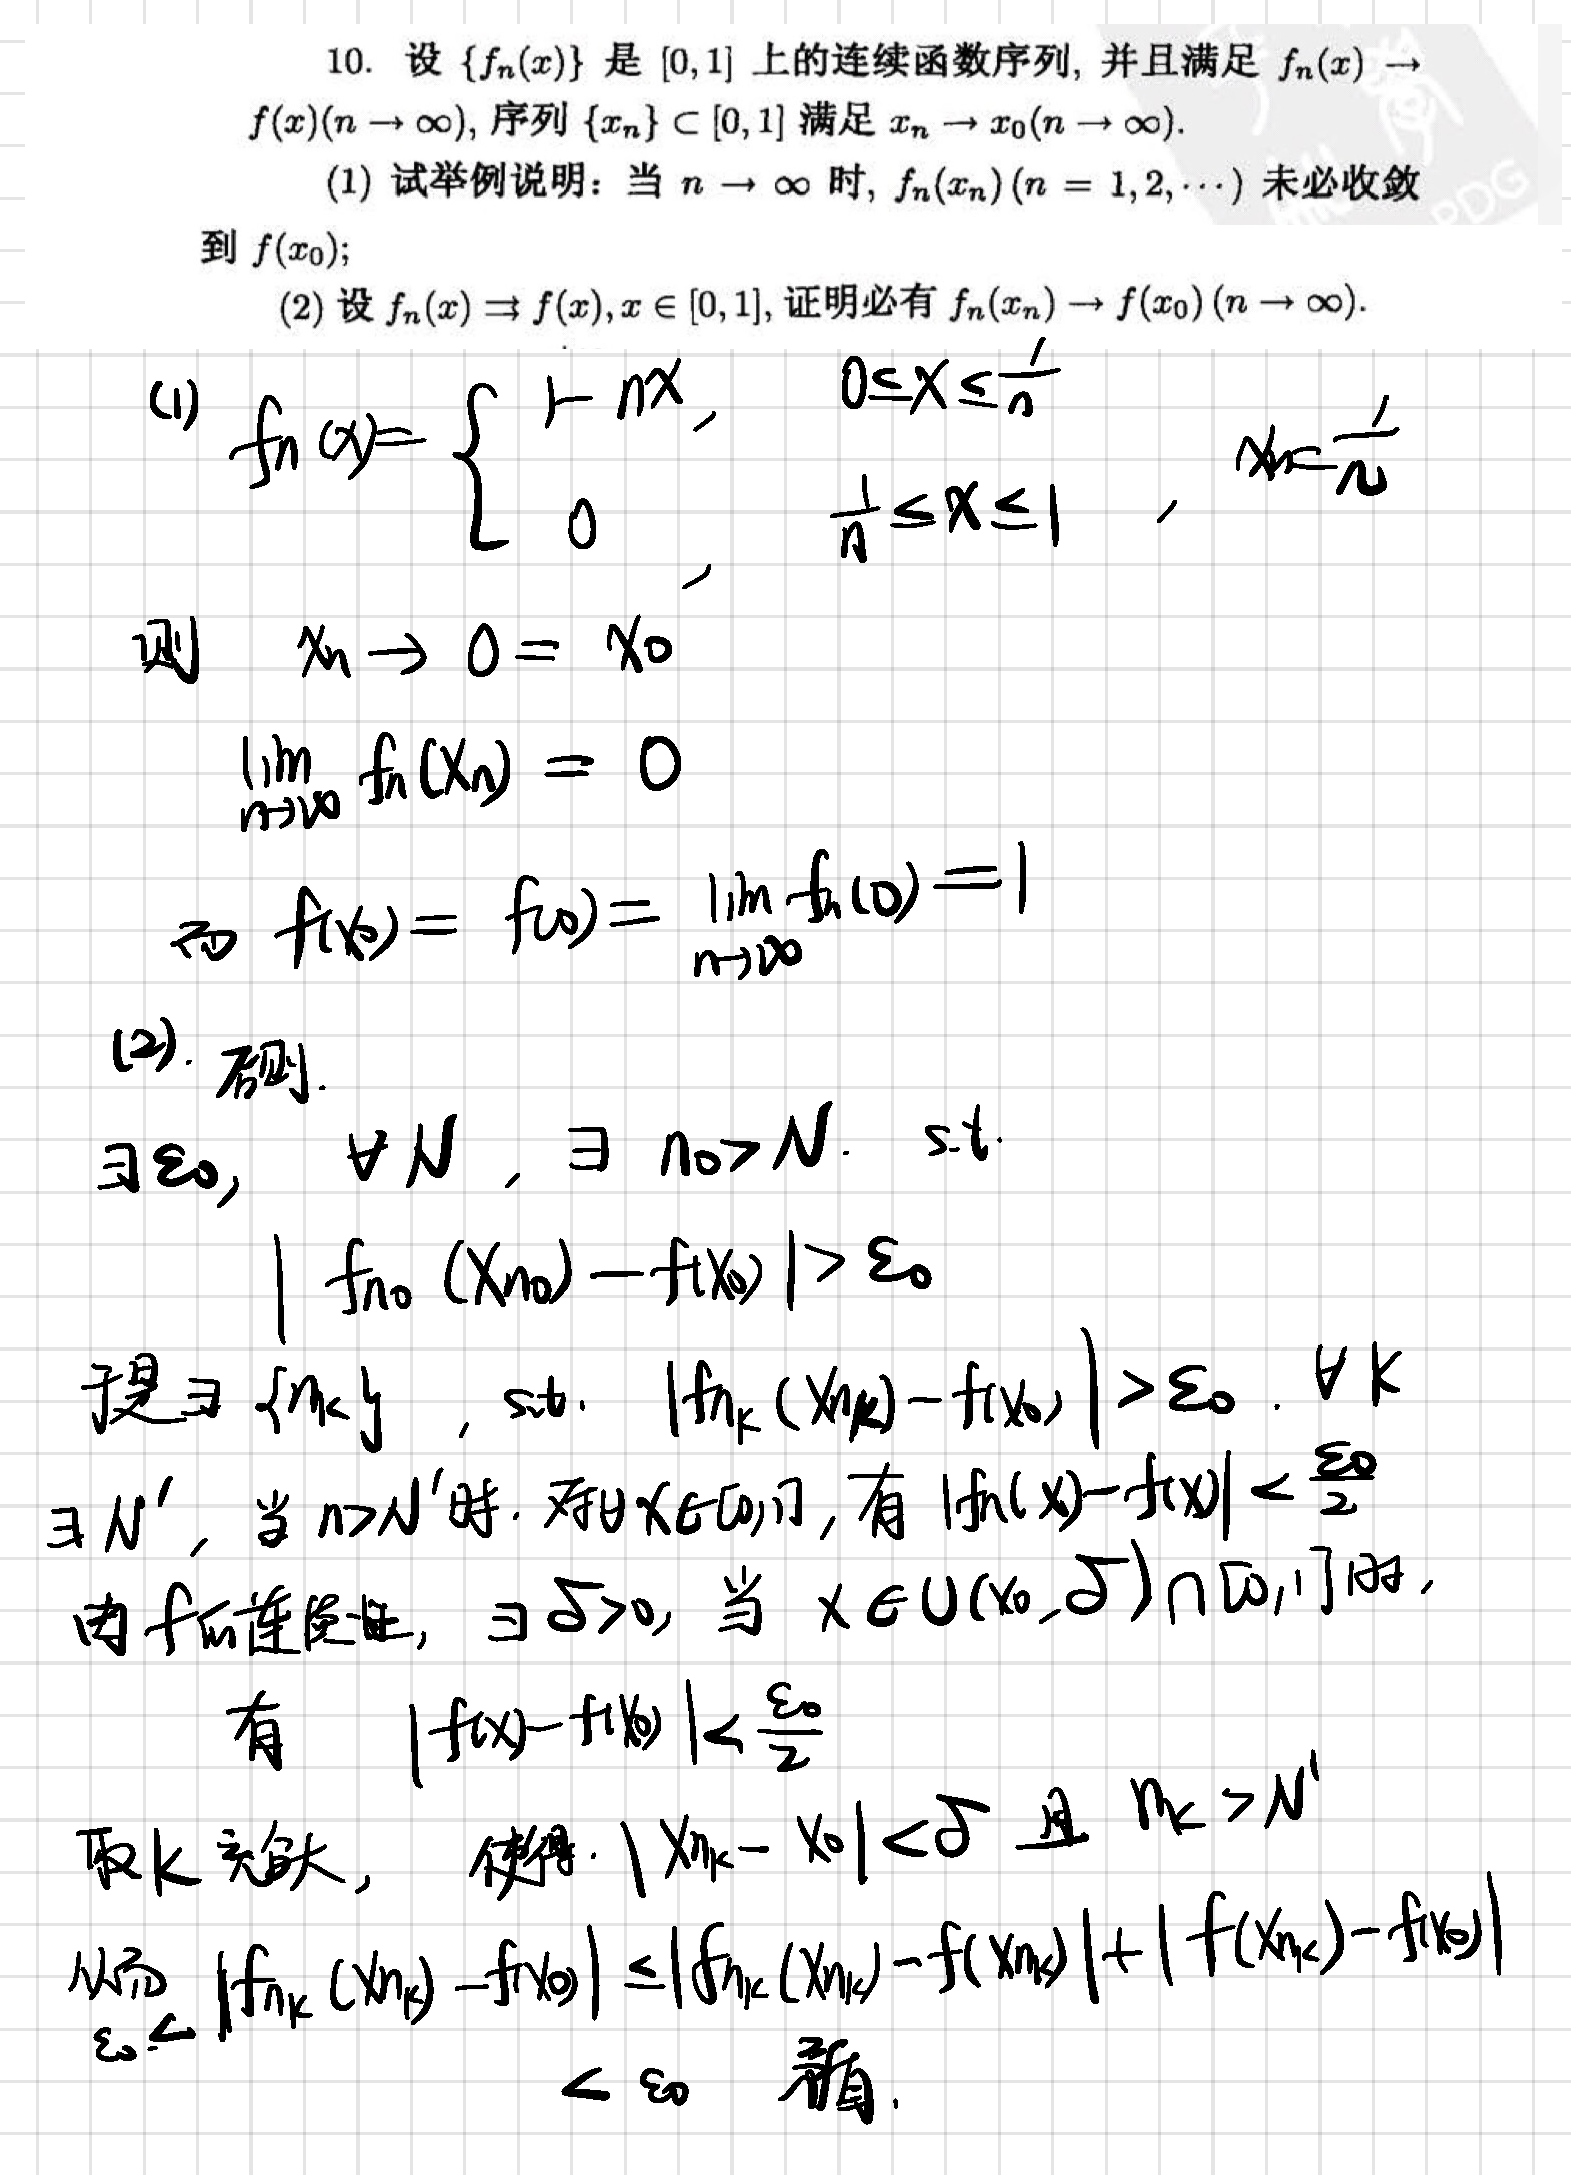 10. 设 {fₙ(x)} 是 [0,1] 上的连续函数序列, 并且满足 fₙ(x) →
f(x)(n → ∞), 序列 {xₙ} ⊂ [0,1] 满足 xₙ → x₀(n → ∞).
(1) 试举例说明: 当 n → ∞ 时, fₙ(xₙ)(n = 1,2,⋯) 未必收敛
到 f(x₀);
(2) 设 fₙ(x) ⇉ f(x), x ∈ [0,1], 证明必有 fₙ(xₙ) → f(x₀)(n → ∞).
PDG
(1) fₙ(x) = { 1 - nx, 0 ≤ x ≤ 1/n
0, 1/n ≤ x ≤ 1 , xₙ = 1/n
则 xₙ → 0 = x₀
lim_{n→∞} fₙ(xₙ) = 0
而 f(x₀) = f(0) = lim_{n→∞} fₙ(0) = 1
(2). 否则.
∃ε₀, ∀N, ∃ n₀ > N. s.t.
| f_{n₀}(x_{n₀}) - f(x₀) | > ε₀
于是∃ {n_k}, s.t. |f_{n_k}(x_{n_k}) - f(x₀)| > ε₀. ∀k
∃N′, 当 n>N′时. 对∀x∈[0,1], 有 |fₙ(x) - f(x)| < ε₀/2
由f的连续性, ∃δ>0, 当 x∈U(x₀,δ)∩[0,1]时,
有 |f(x) - f(x₀)| < ε₀/2
取k充分大, 使得. |x_{n_k} - x₀| < δ 且 n_k > N′
从而 |f_{n_k}(x_{n_k}) - f(x₀)| ≤ |f_{n_k}(x_{n_k}) - f(x_{n_k})| + |f(x_{n_k}) - f(x₀)|
ε₀ <
< ε₀ 矛盾.